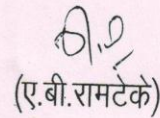 (ए.बी.रामटेके)